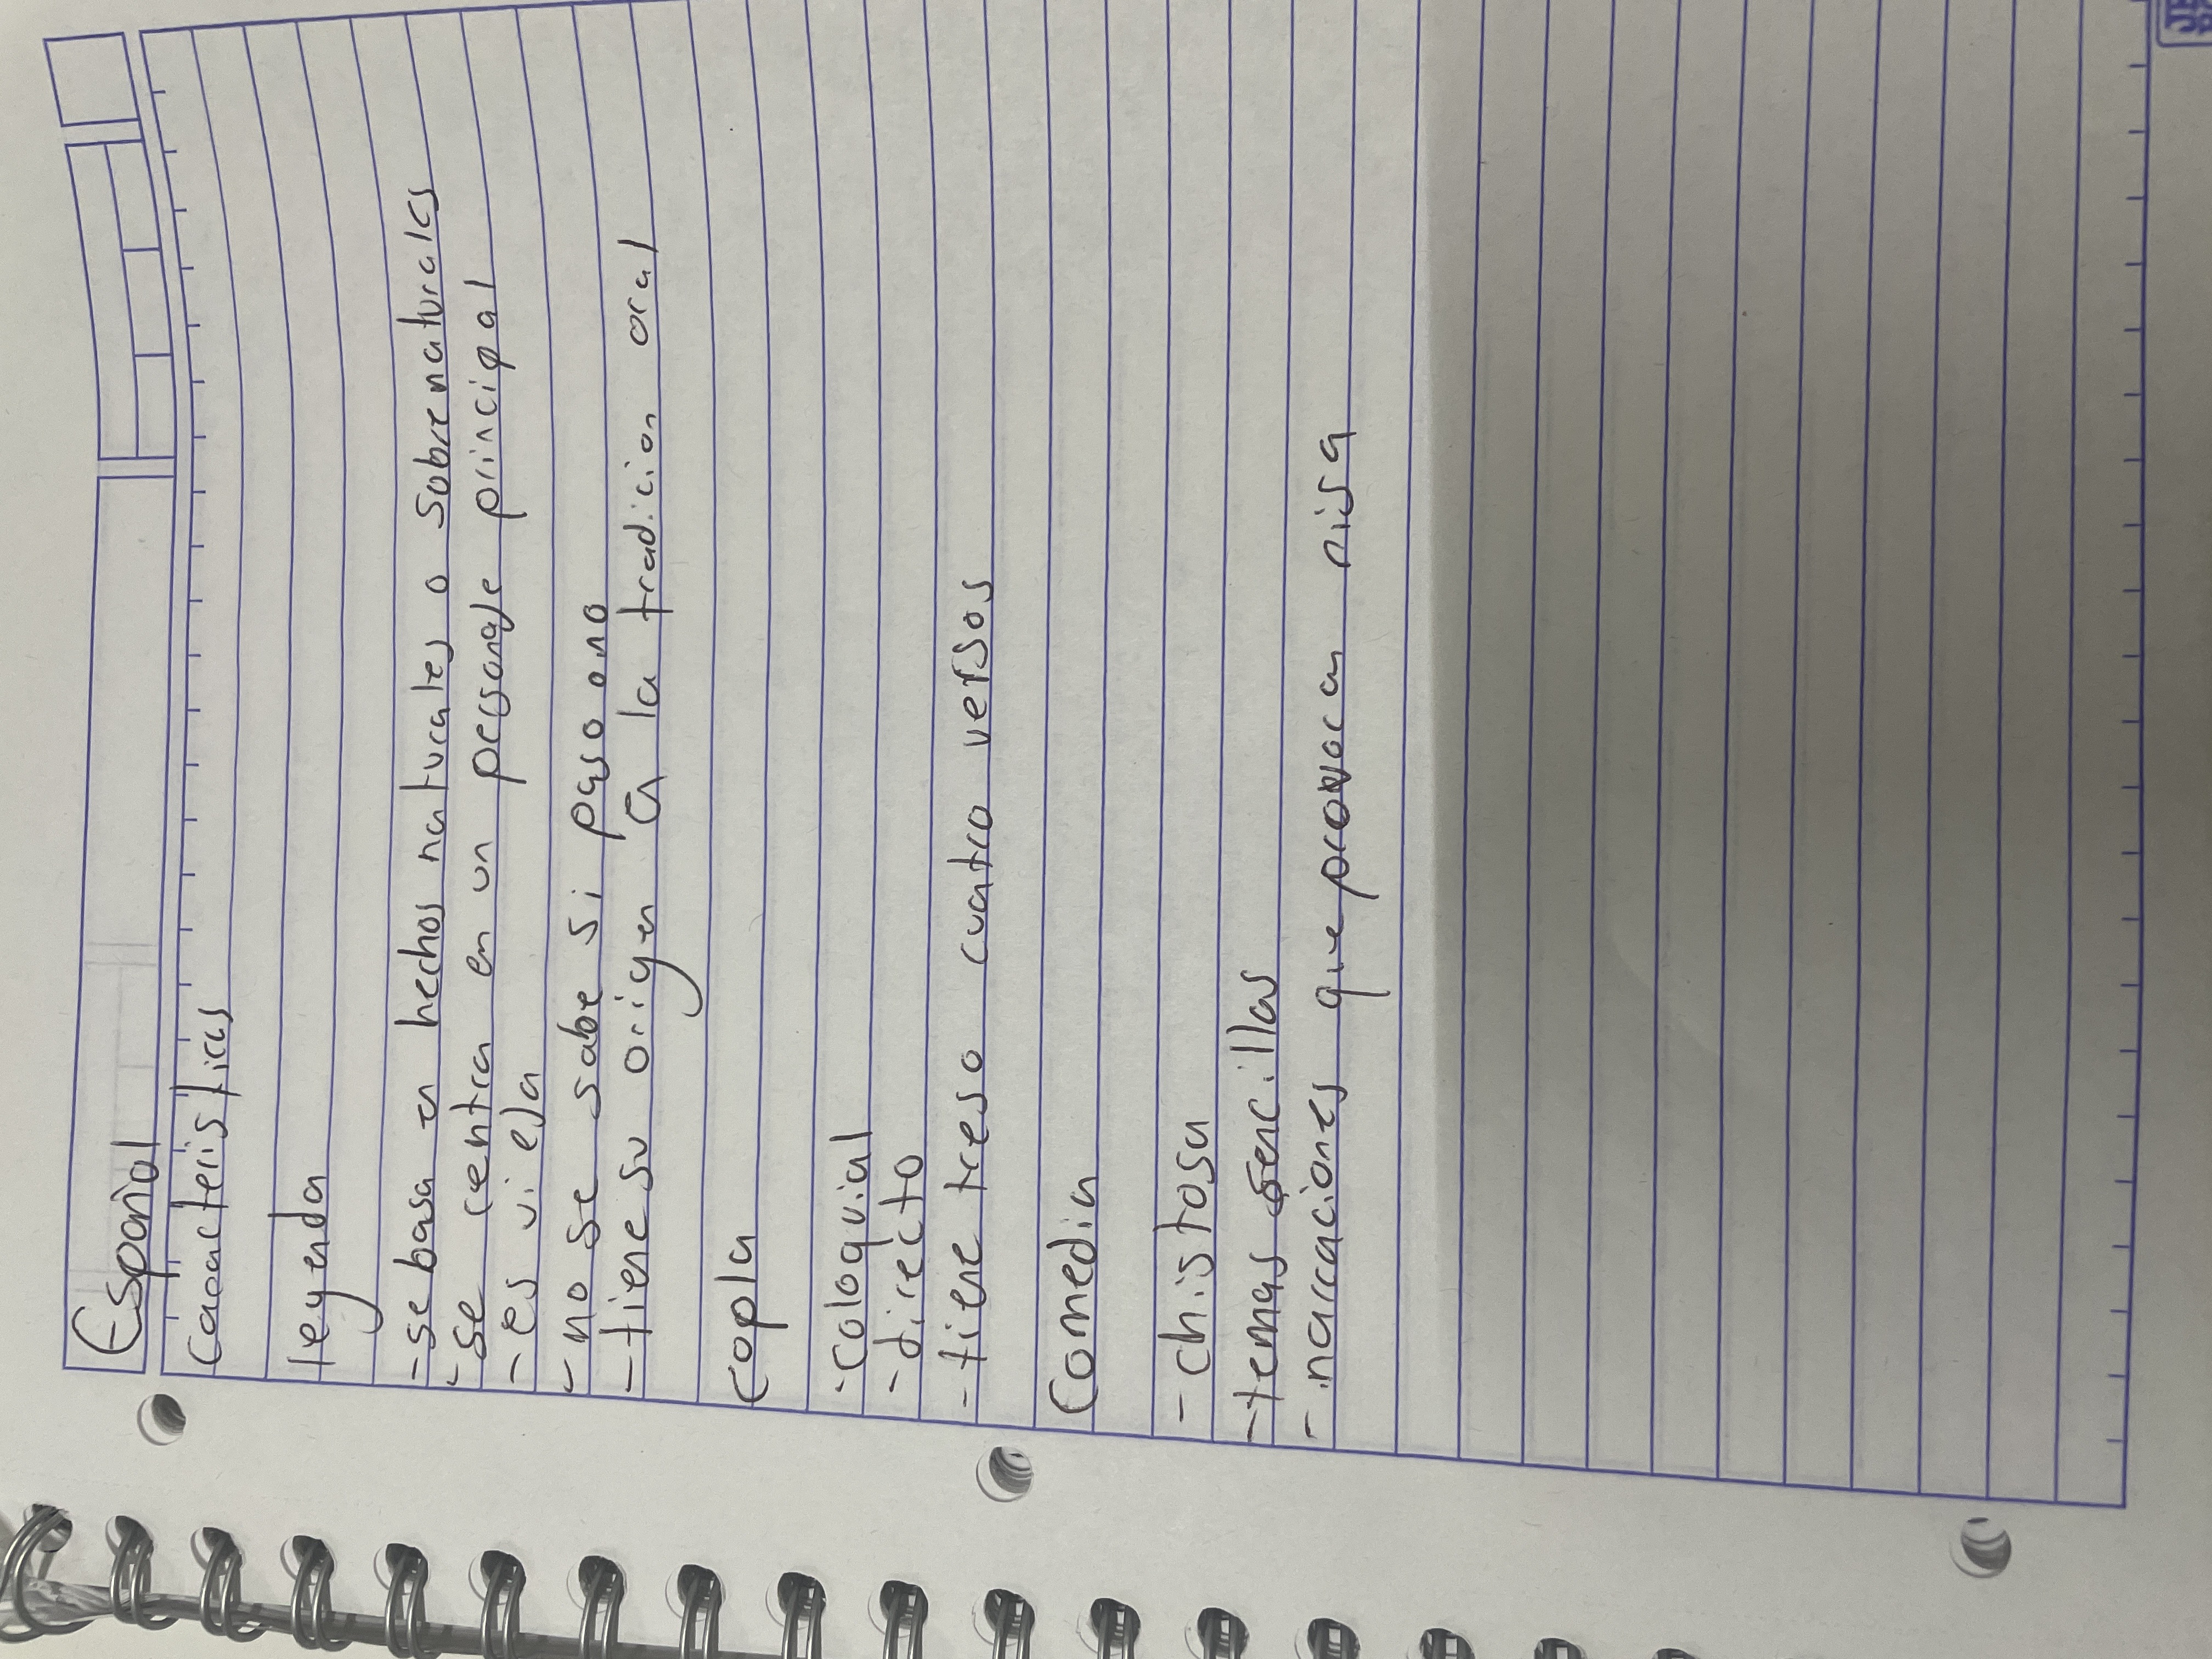 Español
Caracteristicas
leyenda
- se basa en hechos naturales o sobrenaturales
- se centra en un personaje principal
- es vieja
- no se sabe si paso o no
- tiene su origen en la tradicion oral
Copla
- Coloquial
- directo
- tiene tres o cuatro versos
Comedia
- chistosa
- temas sencillas
- narraciones que provocan risa